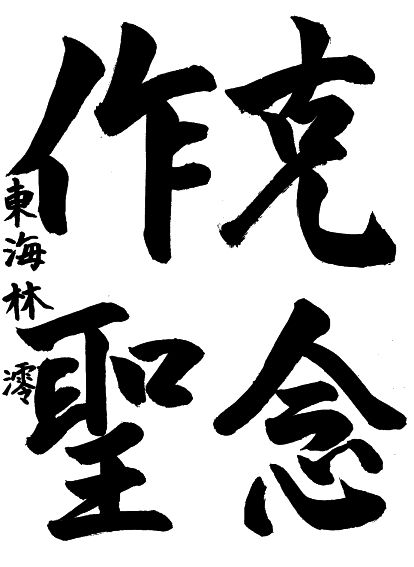 克念
作聖
東海林 澪